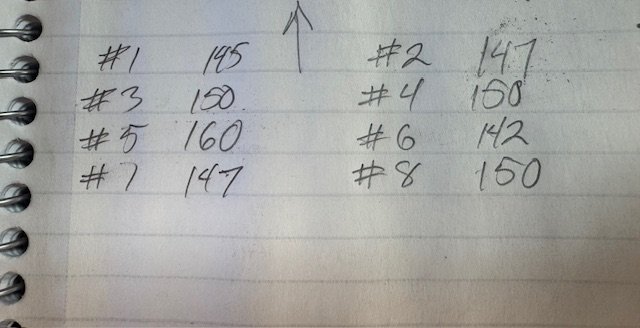 #1 145 #2 147
#3 150 #4 150
#5 160 #6 142
#7 147 #8 150